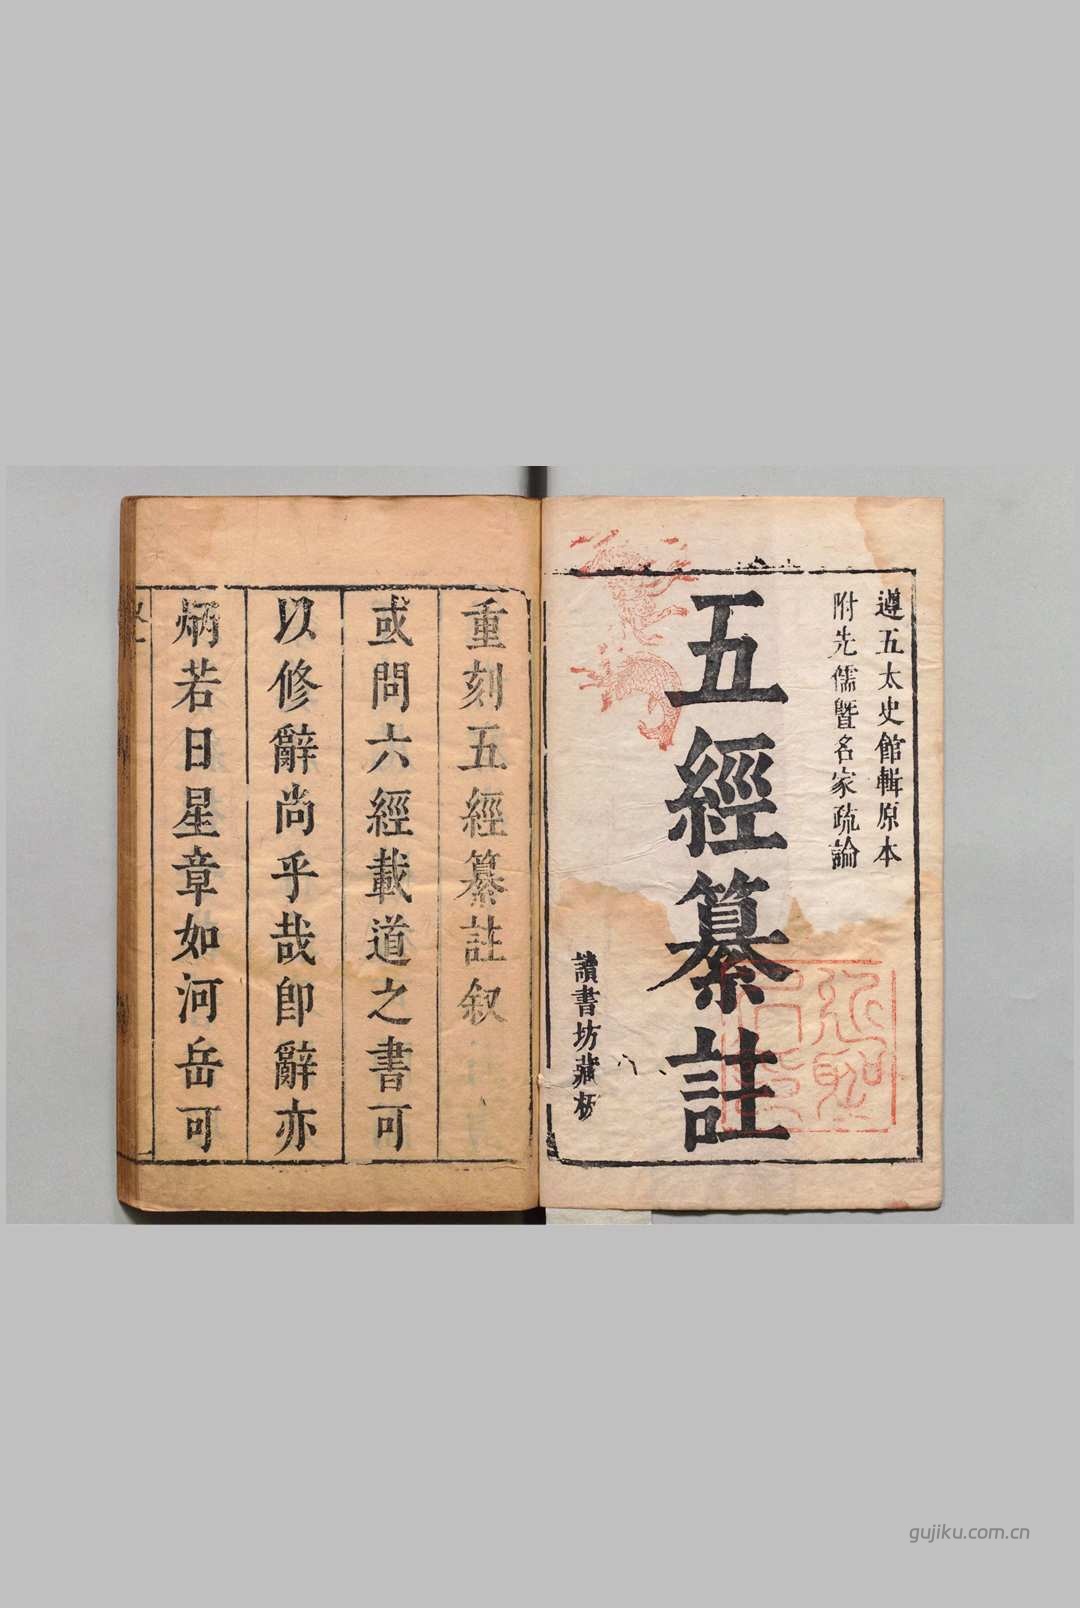 遵五太史館輯原本
附先儒曁名家疏論
五經纂註
讀書坊藏板
重刻五經纂註叙
或問六經載道之書可
以修辭尚乎哉即辭亦
炳若日星章如河岳可
gujiku.com.cn